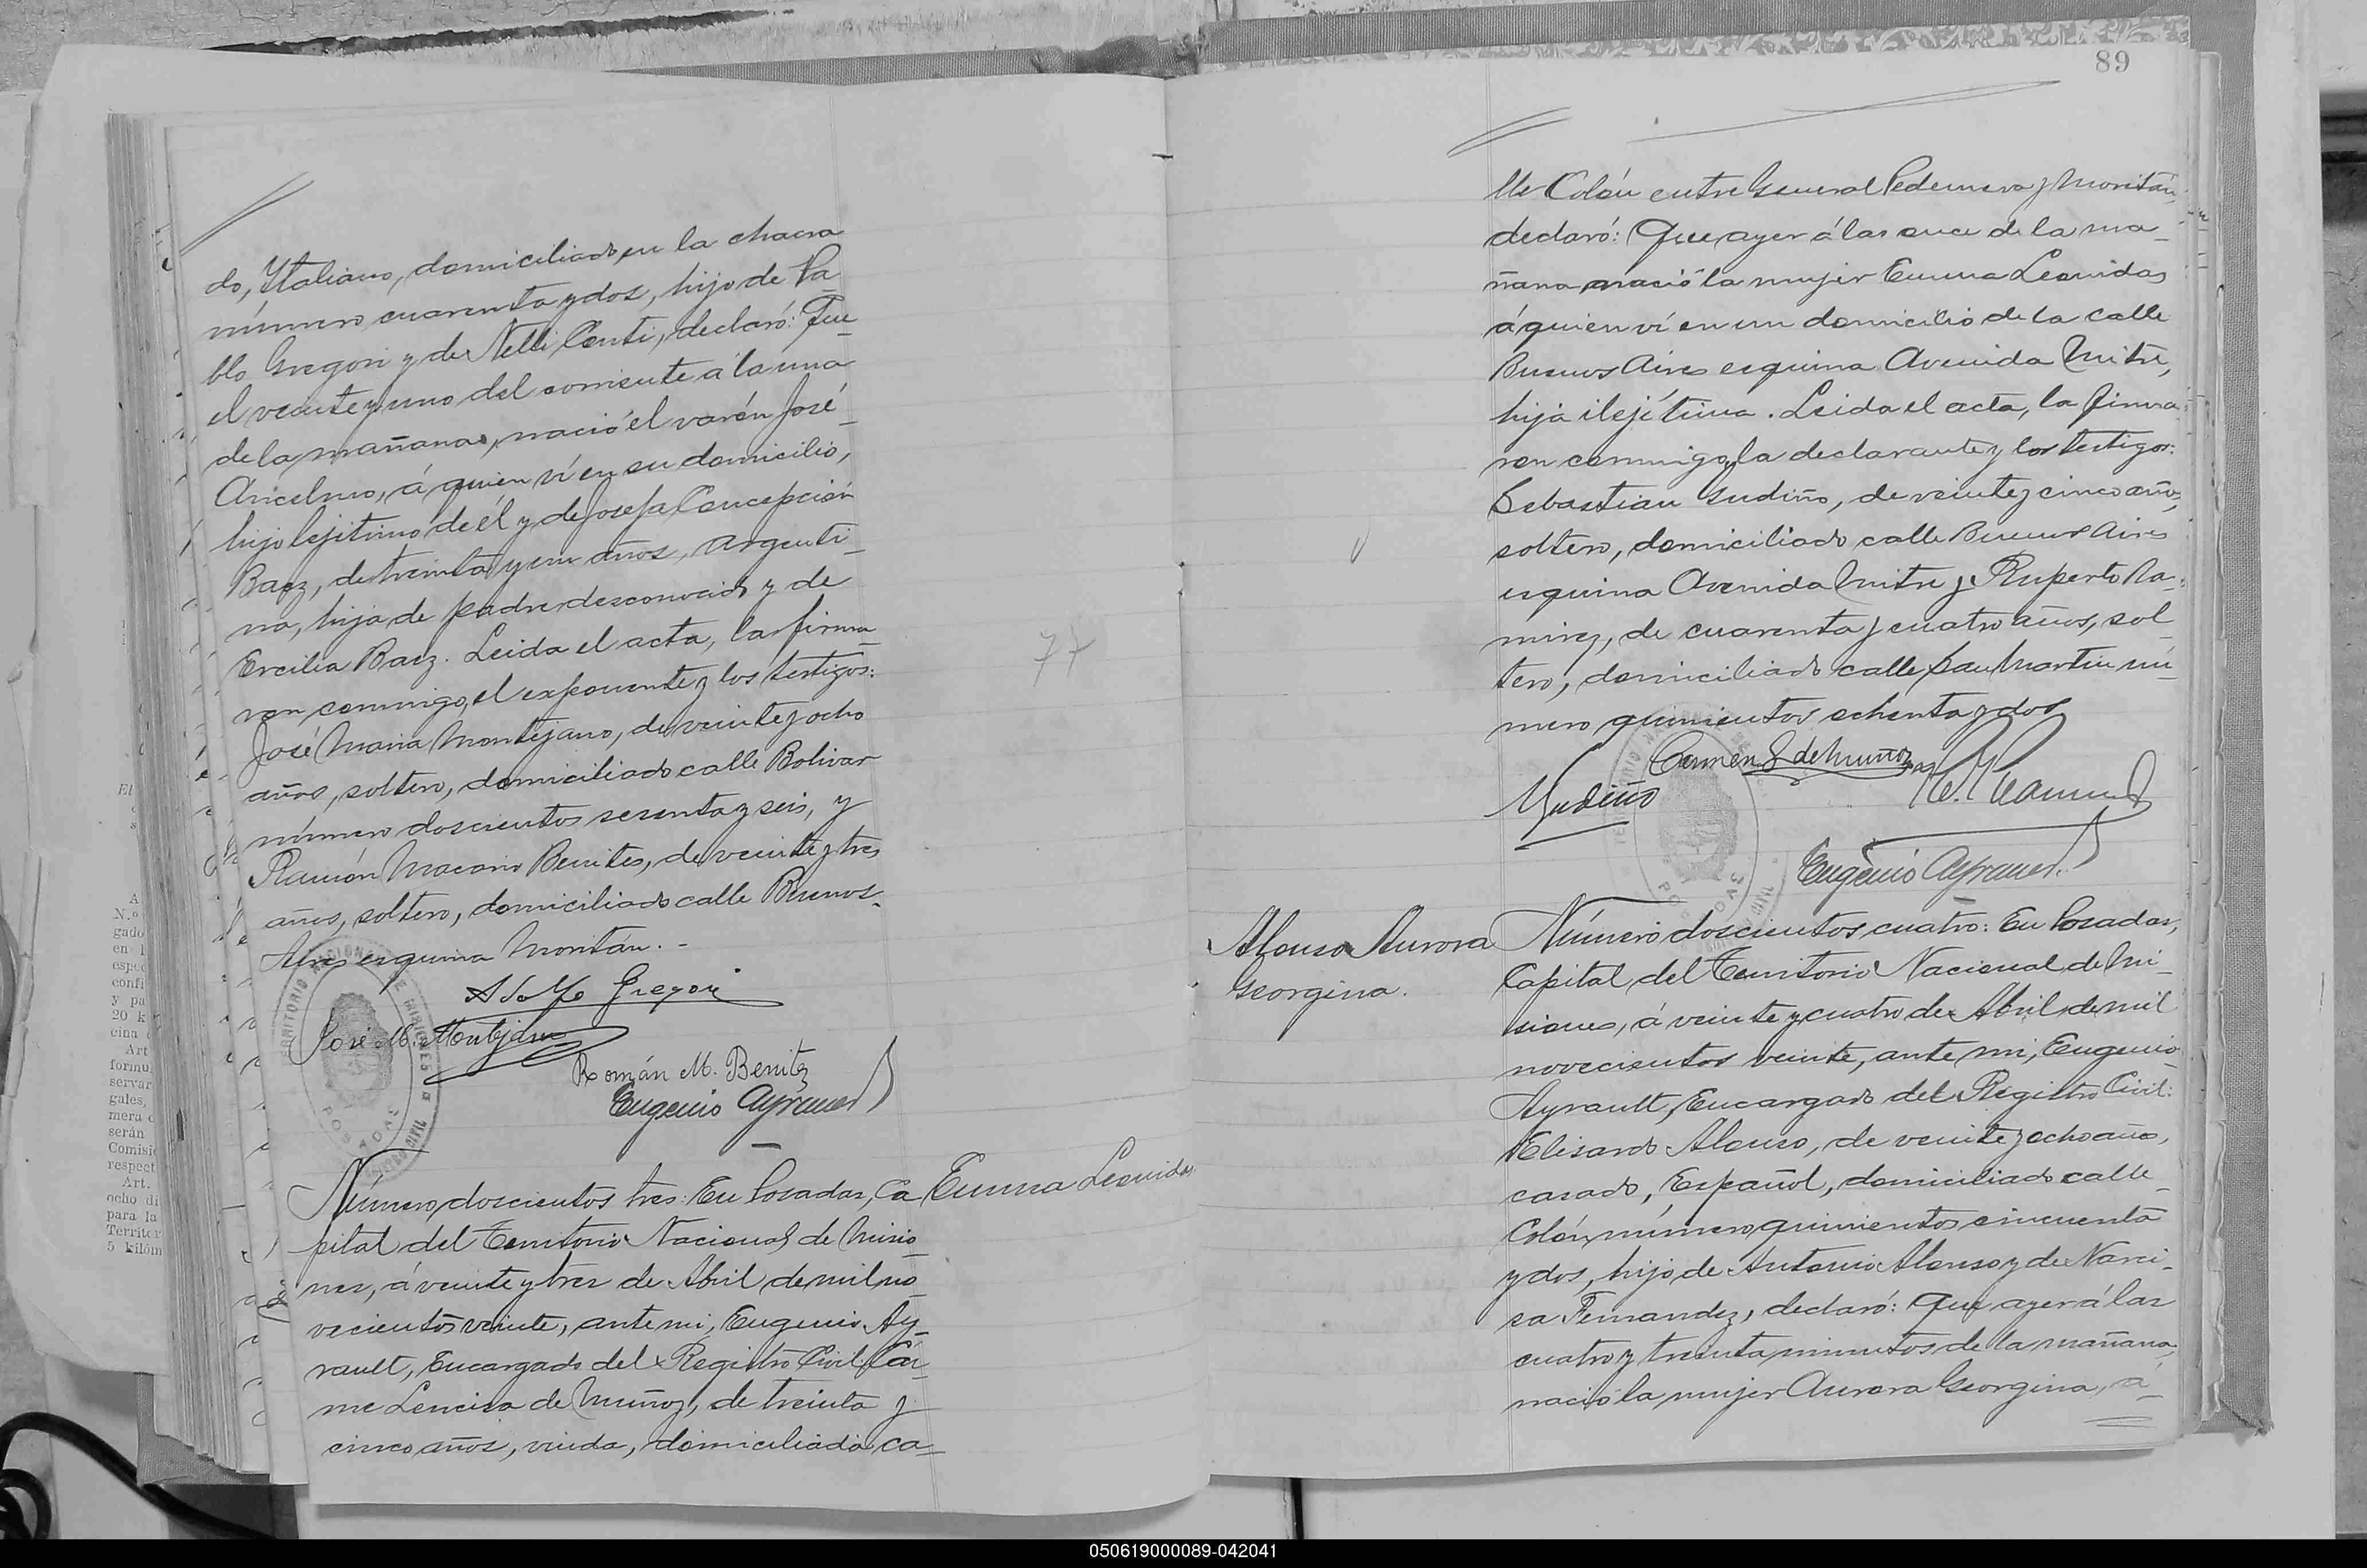 do, Italiano, domiciliado en la chacra
número cuarenta y dos, hijo de Pa
blo Gregori y de Nelli Conti, declaró: Que
el veinte y uno del corriente á la una
de la mañana, nació el varón José
Ancelmo, á quien ví en su domicilio,
hijo lejitimo de él y de Josefa Concepción
Baez, de treinta y un años, argenti_
na, hija de padre desconocido y de
Ercilia Baez. Leida el acta, la firma_
ron conmigo, el exponente y los testigos:
José Maria Montejano, de veinte y ocho
años, soltero, domiciliado calle Bolivar
número doscientos sesenta y seis, y
Ramón Macario Benites, de veinte y tres
años, soltero, domiciliado calle Buenos_
Aires esquina Moritán. -
Adolfo Gregori
José M. Montejano
Román M. Benitez
Eugenio Ayrault
TERRITORIO NACIONAL DE MISIONES
POSADAS
Número doscientos tres: En Posadas, Ca
Emma Leonidas
pital del Territorio Nacional de Misio_
nes, á veinte y tres de Abril de mil no_
vecientos veinte, ante mi, Eugenio Ay_
rault, Encargado del Registro Civil: Car_
me Lencisa de Muñoz, de treinta y
cinco años, viuda, domiciliada ca_
77
89
lle Colón entre General Pedernera y Moritán,
declaró: Que ayer á las once de la ma_
ñana nació la mujer Emma Leonidas
á quien ví en un domicilio de la calle
Buenos Aires esquina Avenida Mitre,
hija ilejítima. Leida el acta, la firma_
ron conmigo, la declarante y los testigos:
Sebastian Gudiño, de veinte y cinco años,
soltero, domiciliado calle Buenos Aires
esquina Avenida Mitre y Ruperto Ra_
mirez, de cuarenta y cuatro años, sol_
tero, domiciliado calle San Martin nú_
mero quinientos ochenta y dos
Carmen L de Muñoz
Gudiño
R. Ramirez
Eugenio Ayrault
Alonso Aurora
Georgina.
Número doscientos cuatro: En Posadas,
Capital del Territorio Nacional de Mi_
siones, á veinte y cuatro de Abril de mil
novecientos veinte, ante mi, Eugenio
Ayrault, Encargado del Registro Civil:
Elisardo Alonso, de veinte y ocho años,
casado, Español, domiciliado calle_
Colón, número quinientos cincuenta
y dos, hijo de Antonio Alonso y de Narci_
sa Fernandez, declaró: Que ayer á las
cuatro y treinta minutos de la mañana,
nació la mujer Aurora Georgina, á_
050619000089-042041